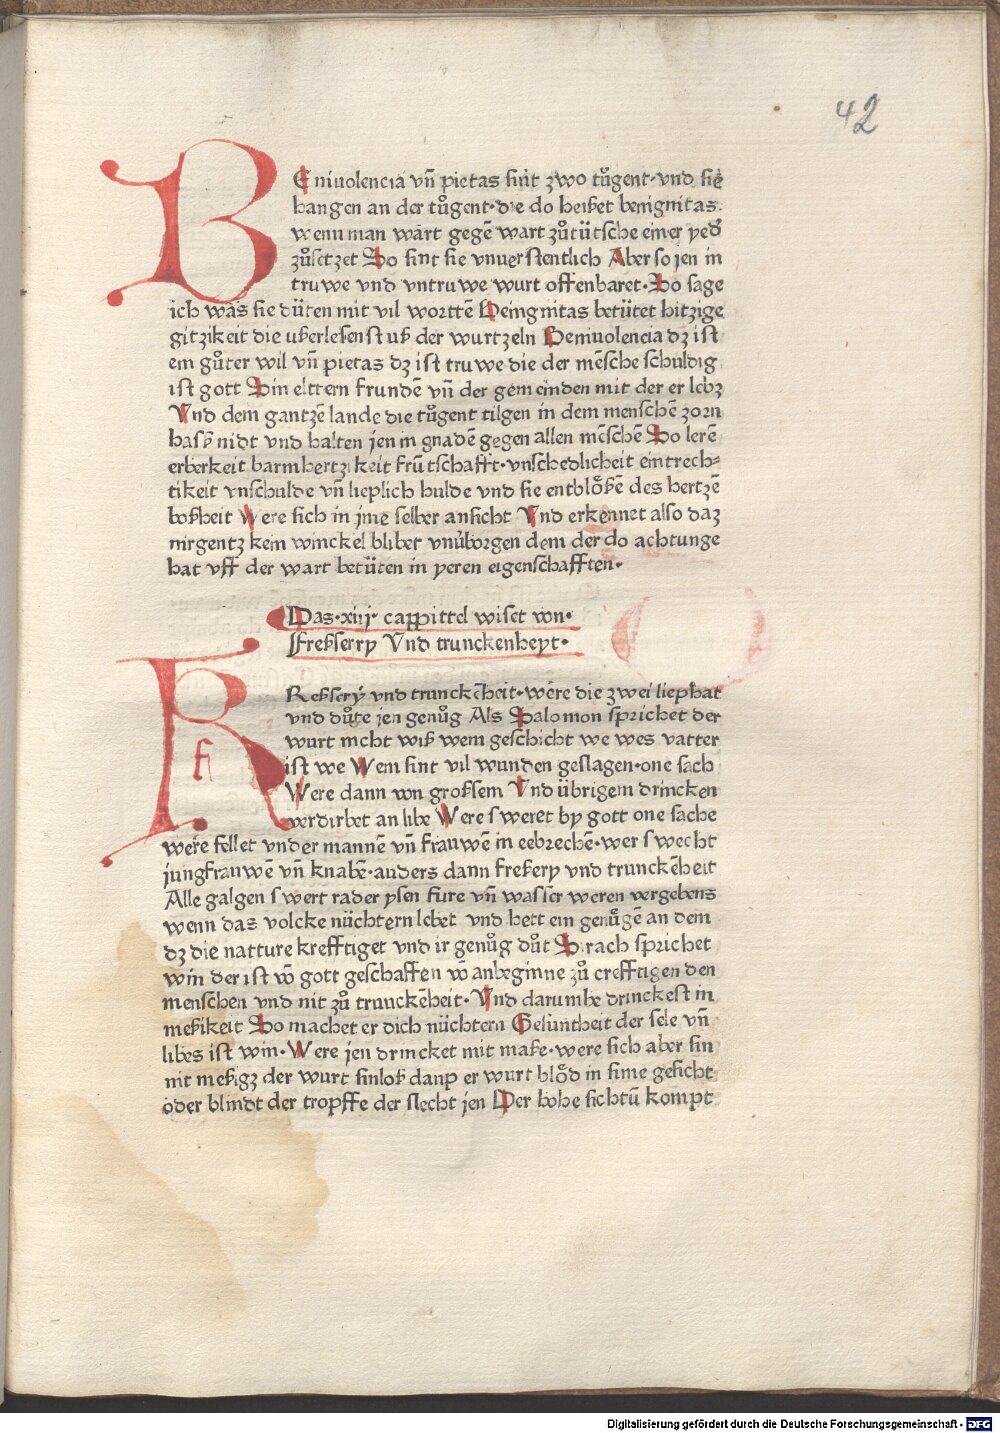 42
BEniuolencia vñ pietas sint zwo tůgent·vnd sie
hangen an der tůgent·die do heisset benignitas·
wenn man wart gegē wart zůtütsche einer yed
zůsetzet So sint sie vnuerstentlich Aber so jen in
truwe vnd vntruwe wurt offenbaret·So sage
ich was sie düten mit vil worttē Beingnitas betütet hitzige
gitzikeit die vßerlesenst vß der wurtzeln Beniuolencia dz ist
ein gůter wil vñ pietas dz ist truwe die der mēsche schuldig
ist gott Sin elttern frundē vñ der gemeinden mit der er lebz
Vnd dem gantzē lande die tůgent tilgen in dem menschē zorn
hasß nidt vnd halten jen in gnadē gegen allen mēschē So lerē
erberkeit barmhertzikeit frūtschafft·vnschedlicheit eintrech-
tikeit vnschulde vñ lieplich hulde vnd sie entblößē des hertzē
boßheit Were sich in jme selber ansicht Vnd erkennet also daz
nirgentz kein winckel blibet vnůborgen dem der do achtunge
hat vff der wart betüten in yeren eigenschafften·
Das·xiij·cappittel wiset von·
ffreßserry Vnd trunckenheyt·
fReßserÿ vnd trunckēheit·wēre die zwei liephat
vnd důte jen genůg Als Salomon sprichet der
wurt nicht wiß wem geschicht we wes vatter
ist we Wem sint vil wunden geslagen·one sach
Were dann von großsem Vnd übrigem drincken
verdirbet an libe Were sweret by gott one sache
were fellet vnder mannē vñ frauwē in eebrechē·wer swecht
jungfrauwē vñ knabē·anders dann freßery vnd trunckēheit
Alle galgen swert rader ysen fure vñ wasser weren vergebens
wenn das volcke nüchtern lebet vnd hett ein genůgē an dem
dz die natture krefftiget vnd ir genůg důt Sirach sprichet
win der ist vō gott geschaffen vō anbeginne zů crefftigen den
menschen vnd nit zů trunckēheit·Vnd darumbe drinckest in
meßikeit So machet er dich nüchtern Gesuntheit der sele vñ
libes ist win·Were jen drincket mit maße·were sich aber sin
nit meßigz der wurt sinloß danp er wurt blöd in sime gesicht
oder blindt der tropffe der slecht jen Der hohe sichtū kompt
Digitalisierung gefördert durch die Deutsche Forschungsgemeinschaft - DFG